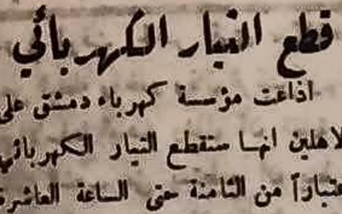 قطع التيار الكهربائي
اذاعت مؤسسة كهرباء دمشق على
الاهلين انها ستقطع التيار الكهربائي
عتباراً من الثامنة حتى الساعة العاشرة